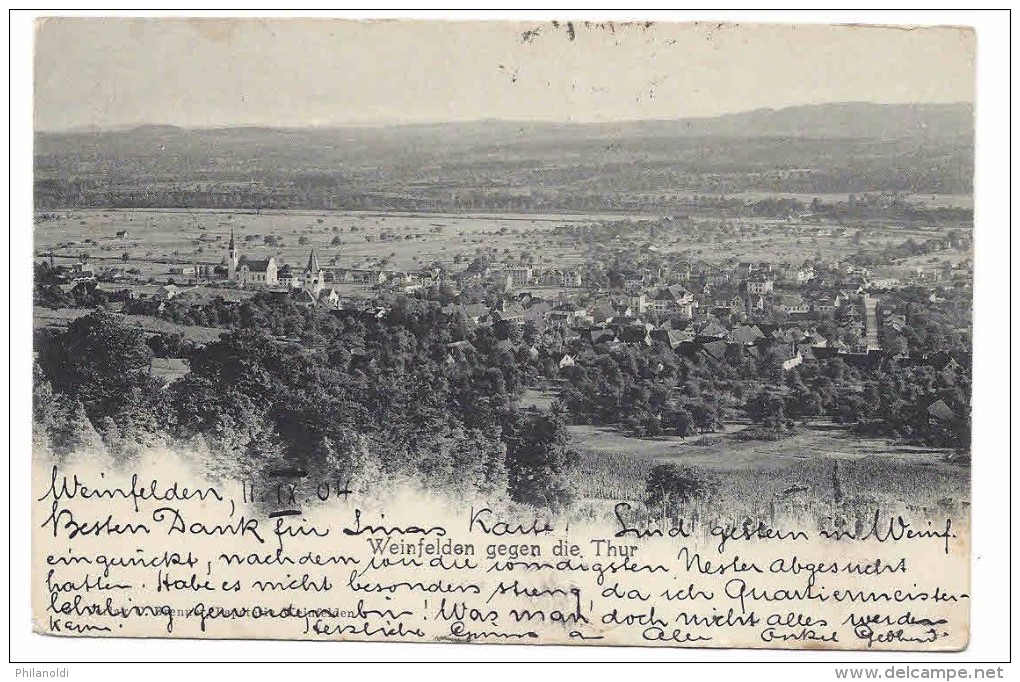 Weinfelden, 11 IX 04
Besten Dank für Linas Karte! Sind gestern in Weinf.
Weinfelden gegen die Thur
eingerückt, nachdem wir die Nester abgesucht
hatten. Habe es nicht besonders streng, da ich Quartiermeister-
Lehrling geworden bin! Was man doch nicht alles werden
kann. Herzliche an Alle Onkel
Philanoldi
www.delcampe.net